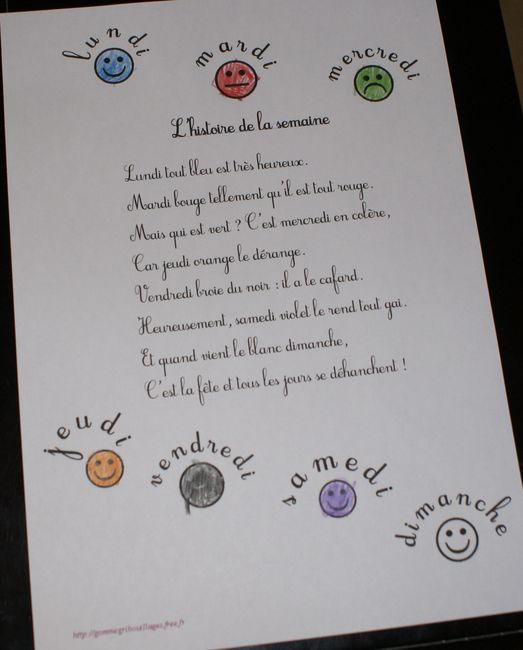 lundi
mardi
mercredi
L'histoire de la semaine
Lundi tout bleu est très heureux.
Mardi bouge tellement qu'il est tout rouge.
Mais qui est vert ? C'est mercredi en colère,
Car jeudi orange le dérange.
Vendredi broie du noir : il a le cafard.
Heureusement, samedi violet le rend tout gai.
Et quand vient le blanc dimanche,
C'est la fête et tous les jours se déhanchent !
jeudi
vendredi
samedi
dimanche
http://gommegribouillages.free.fr